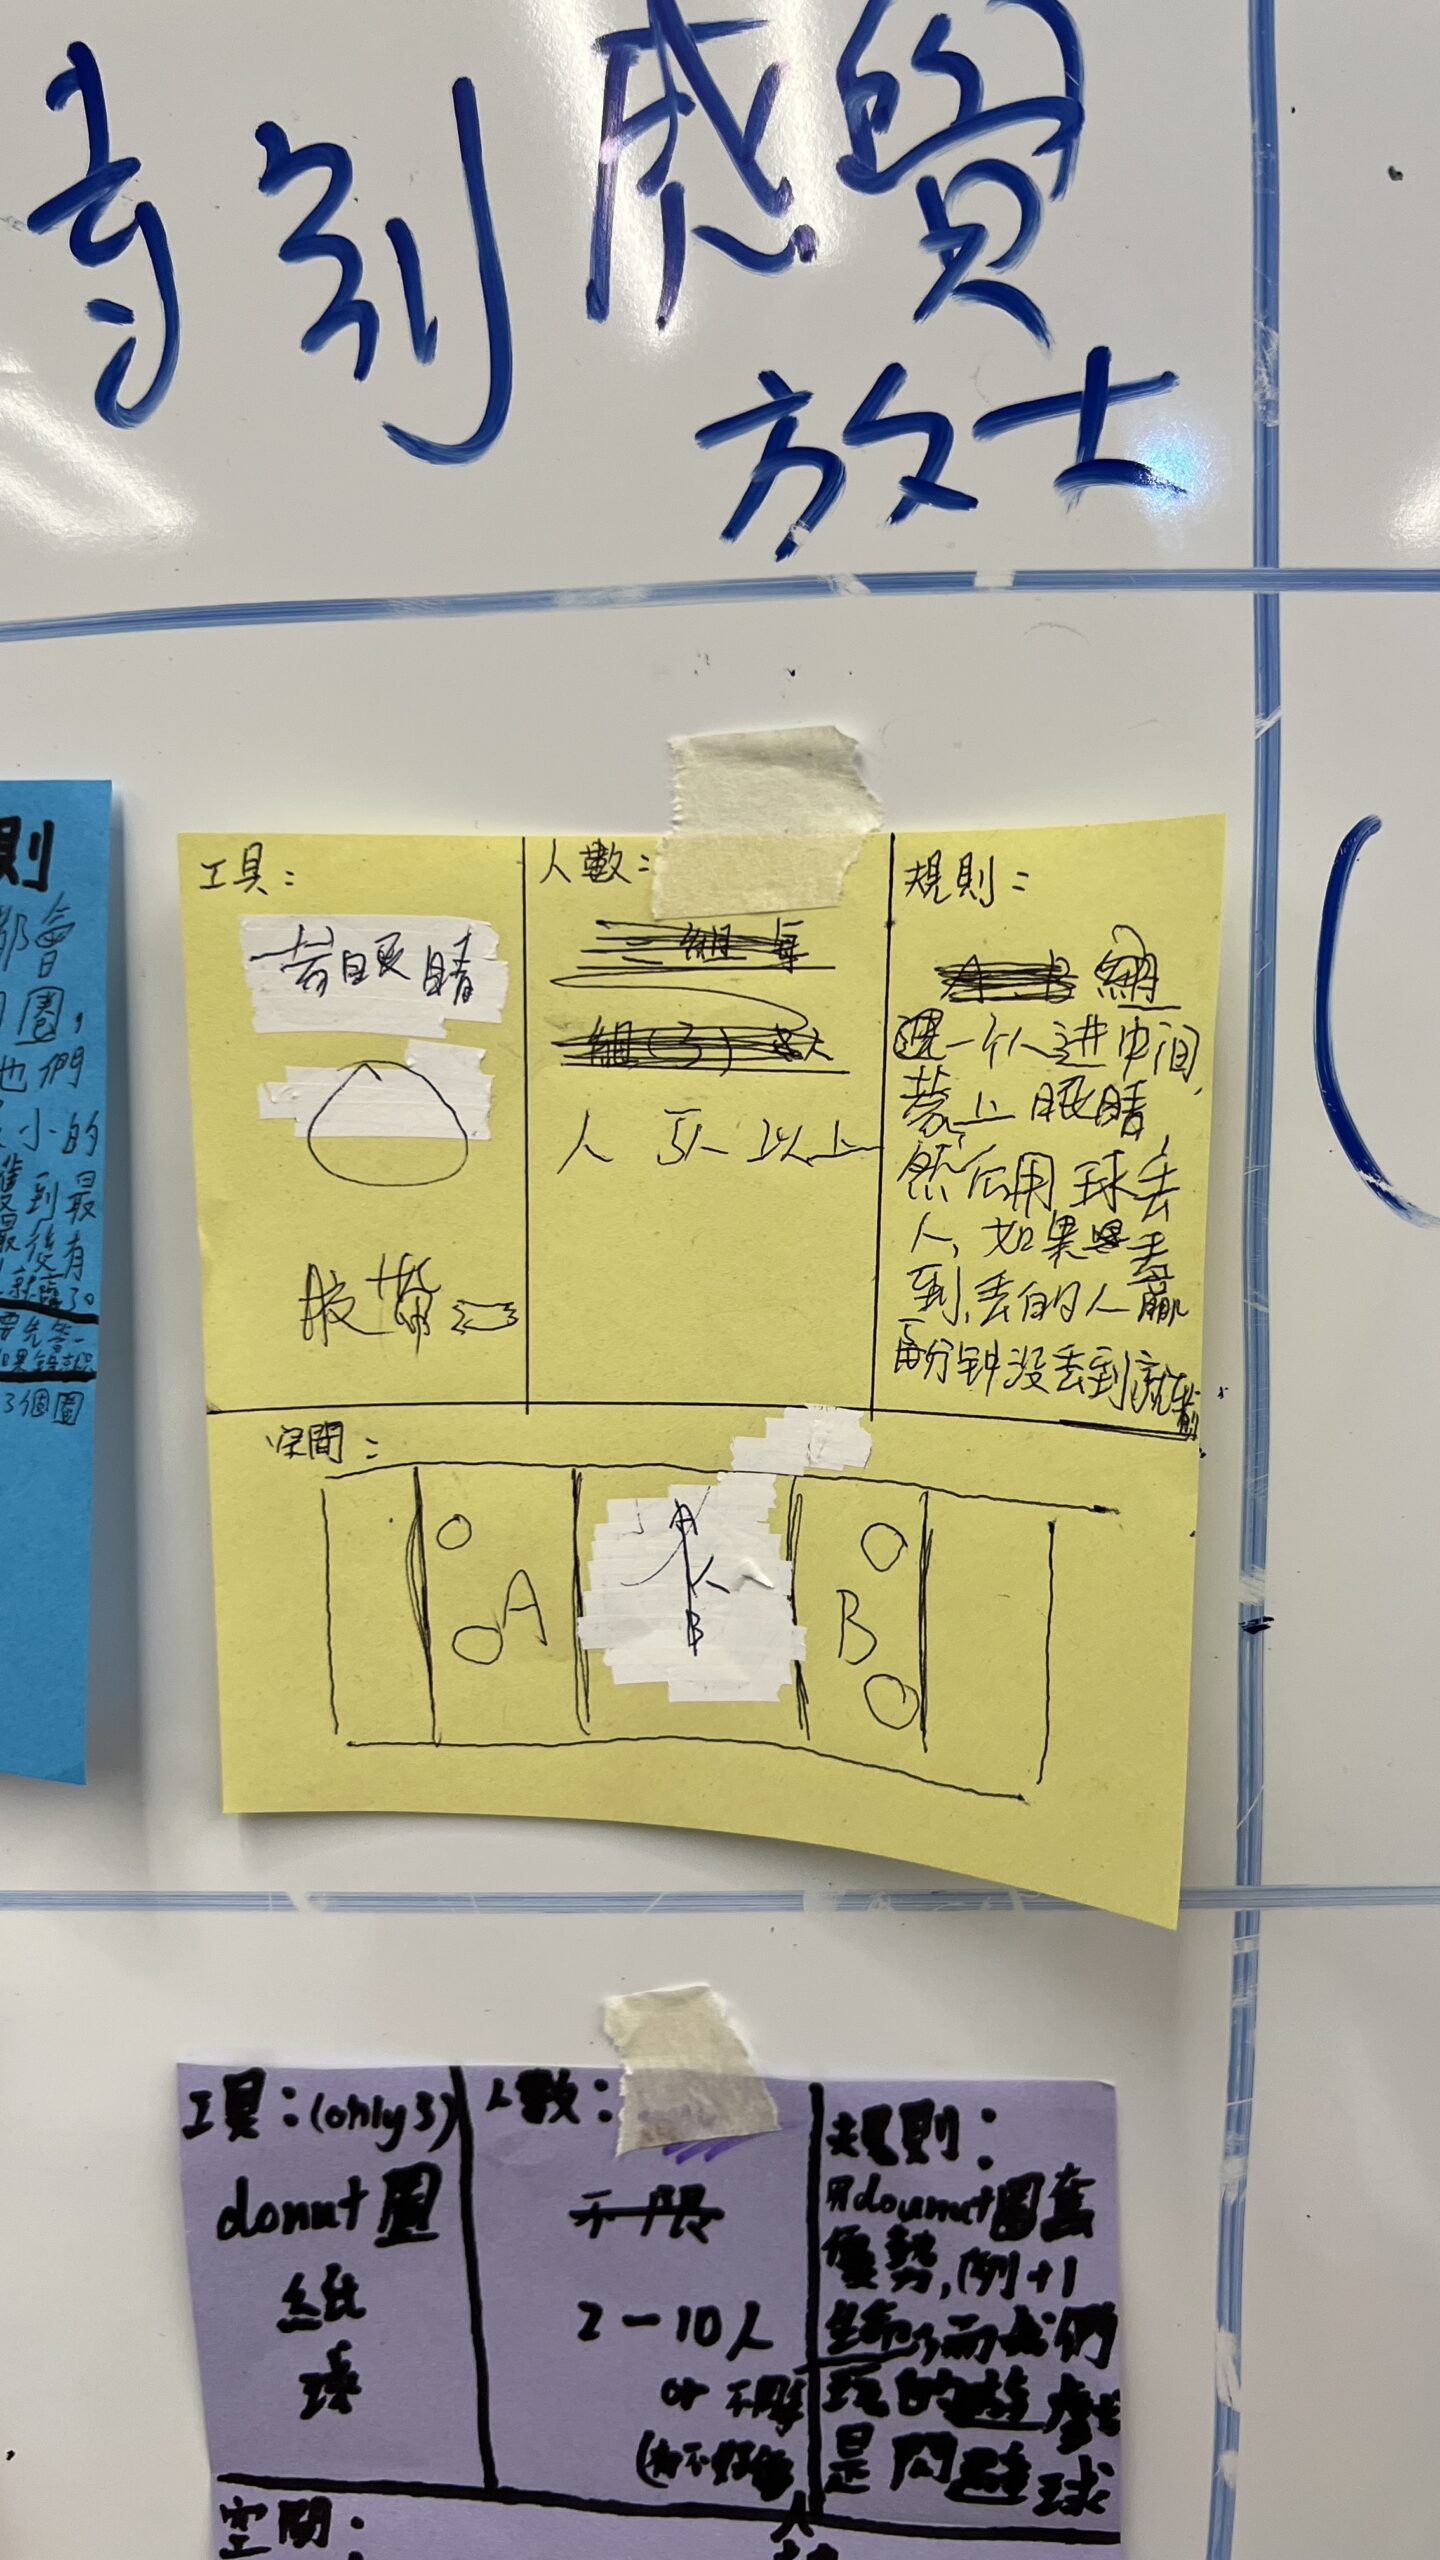 特別感覺
方式
則
都會
圈,
他們
小的
到最
最後有
就贏了。
要先答
3個圈
工具:
蒙眼睛
膠帶
人數:
三組 每
組(3)
人 5人以上
規則:
組
選一个人进中间,
蒙上眼睛
然后用球丢
人,如果丢
到,丢的人贏
两分钟没丢到就輸
空間:
A
A
B
B
工具:(only 3)
donut圈
紙
球
人數:
不限
2-10人
or 不限
規則:
用dounut圈套
優勢,例+1
生命,而我們
玩的遊戲
是閃避球
空間: